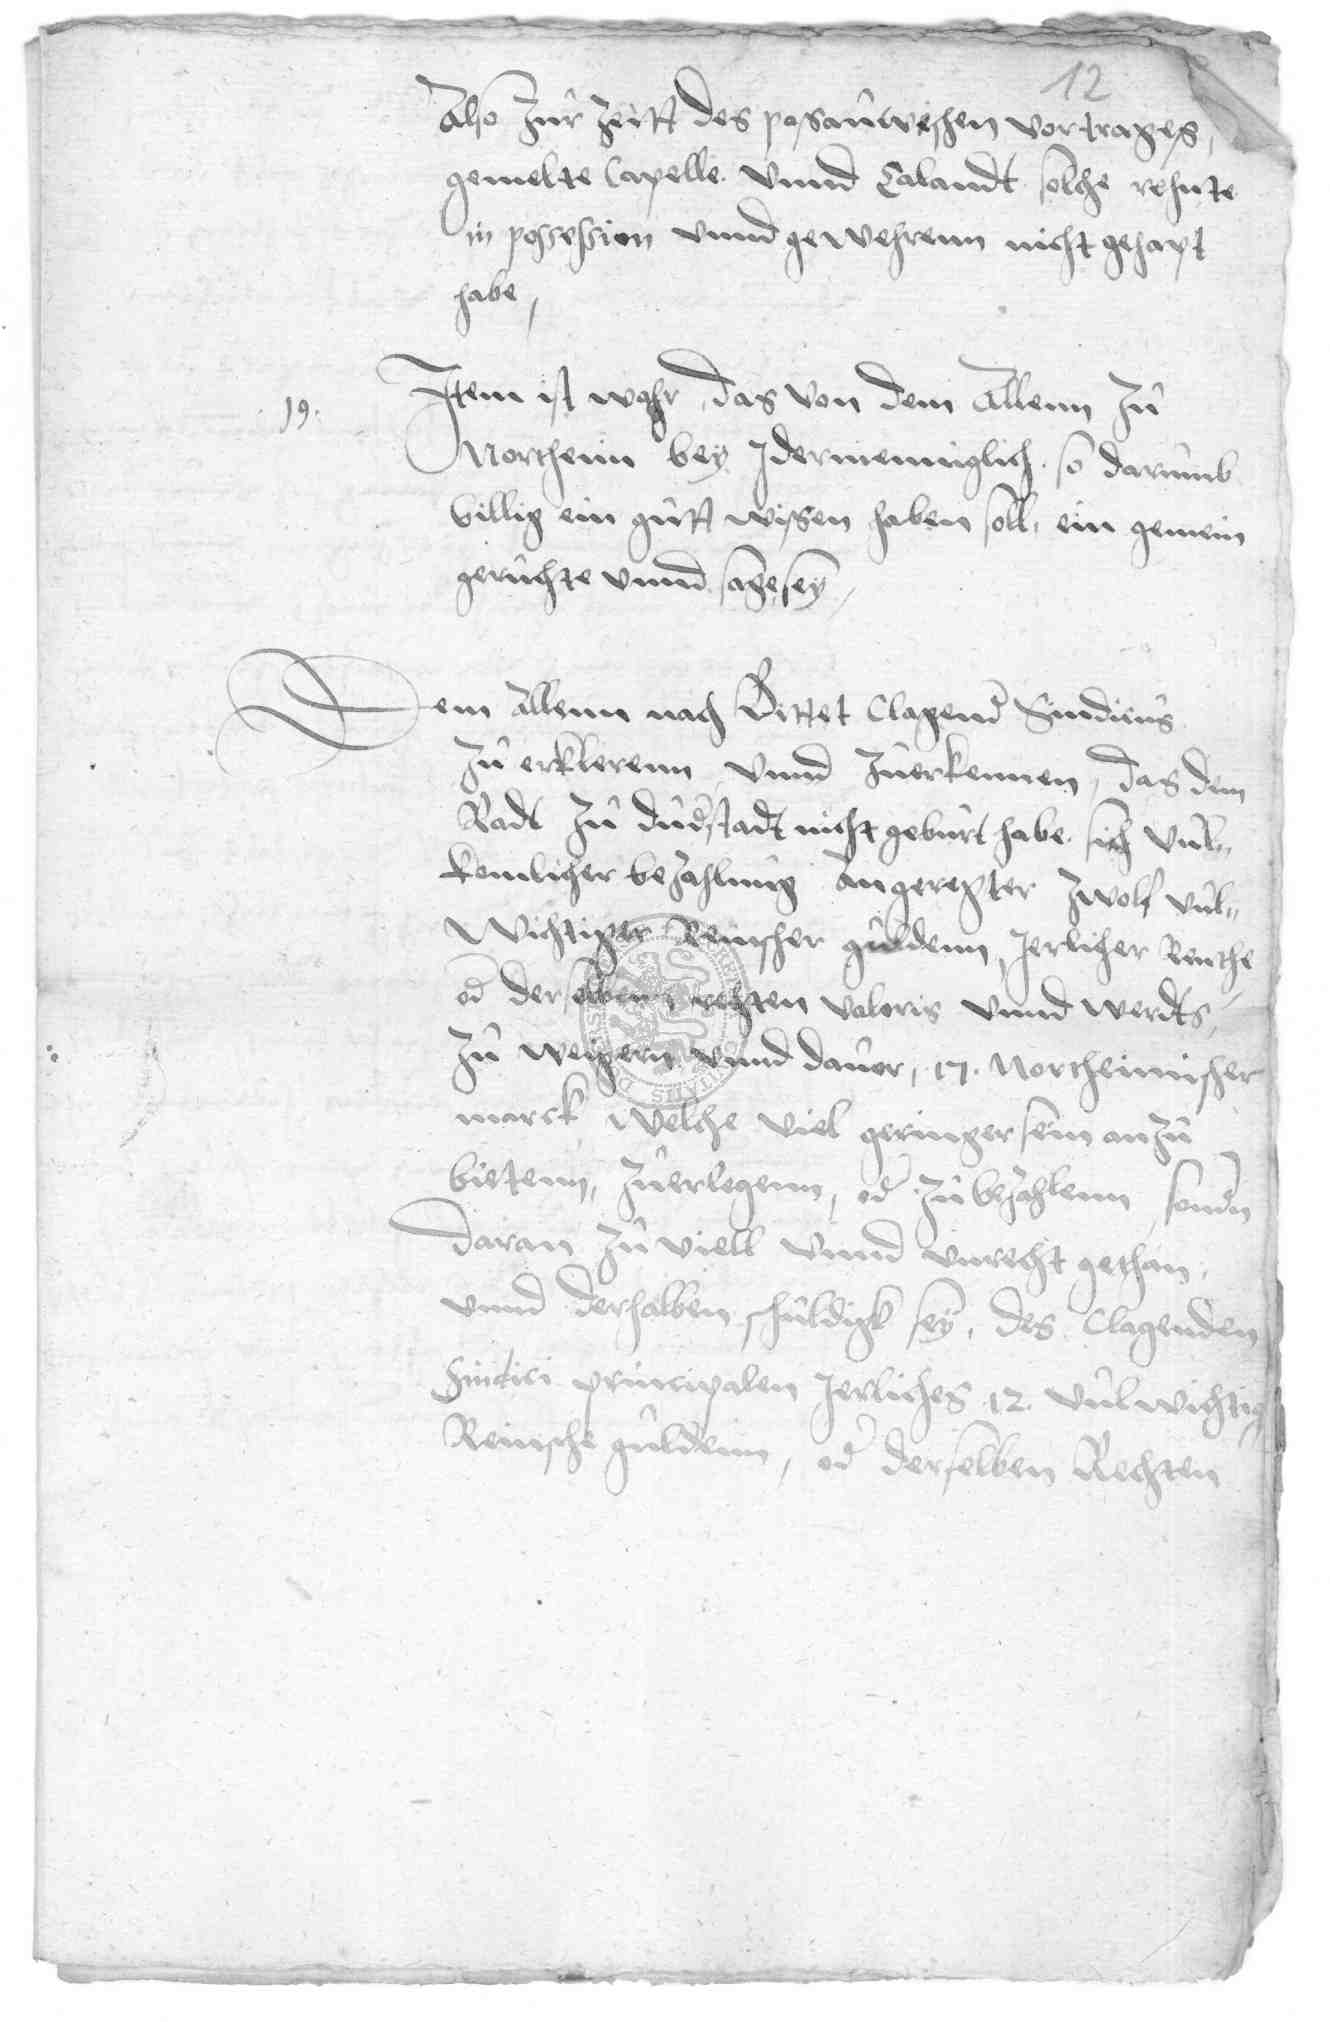 12
Also zur Zeitt des passauwischen vortrages,
gemelte Capelle vnnd Calandt solche rehnte
in possession vnnd gewehrenn nicht gehapt
habe,
19. Item ist wahr, das von dem Allenn zu
Northeim bey Idermenniglich so darumb
billig ein gutt wissen haben soll, ein gemein
geruchte vnnd sage sey,
Dem Allenn nach Bittet Clagend Sindicus
zu erklerenn vnnd zuerkennen, das dem
Radt zu dudstadt nicht geburt habe sich vul„
komlicher bezahlung angeregter zwolf vul„
wichtiger Reinscher guldenn, Jerlicher Renthe
od derselben rechten valoris vnnd werdts,
zu weigern vnnd dauor, 17. Northeimischer
marck welche viel geringer sein anzu
bietenn, zuerlegenn, od zubezahlenn, sondn
daran zu viell vnnd vnrecht gethan,
vnnd derhalben schuldigk sey, des Clagenden
Sindici principalen Jerliches 12. vulwichtig
Reinsche guldenn, od derselben Rechten